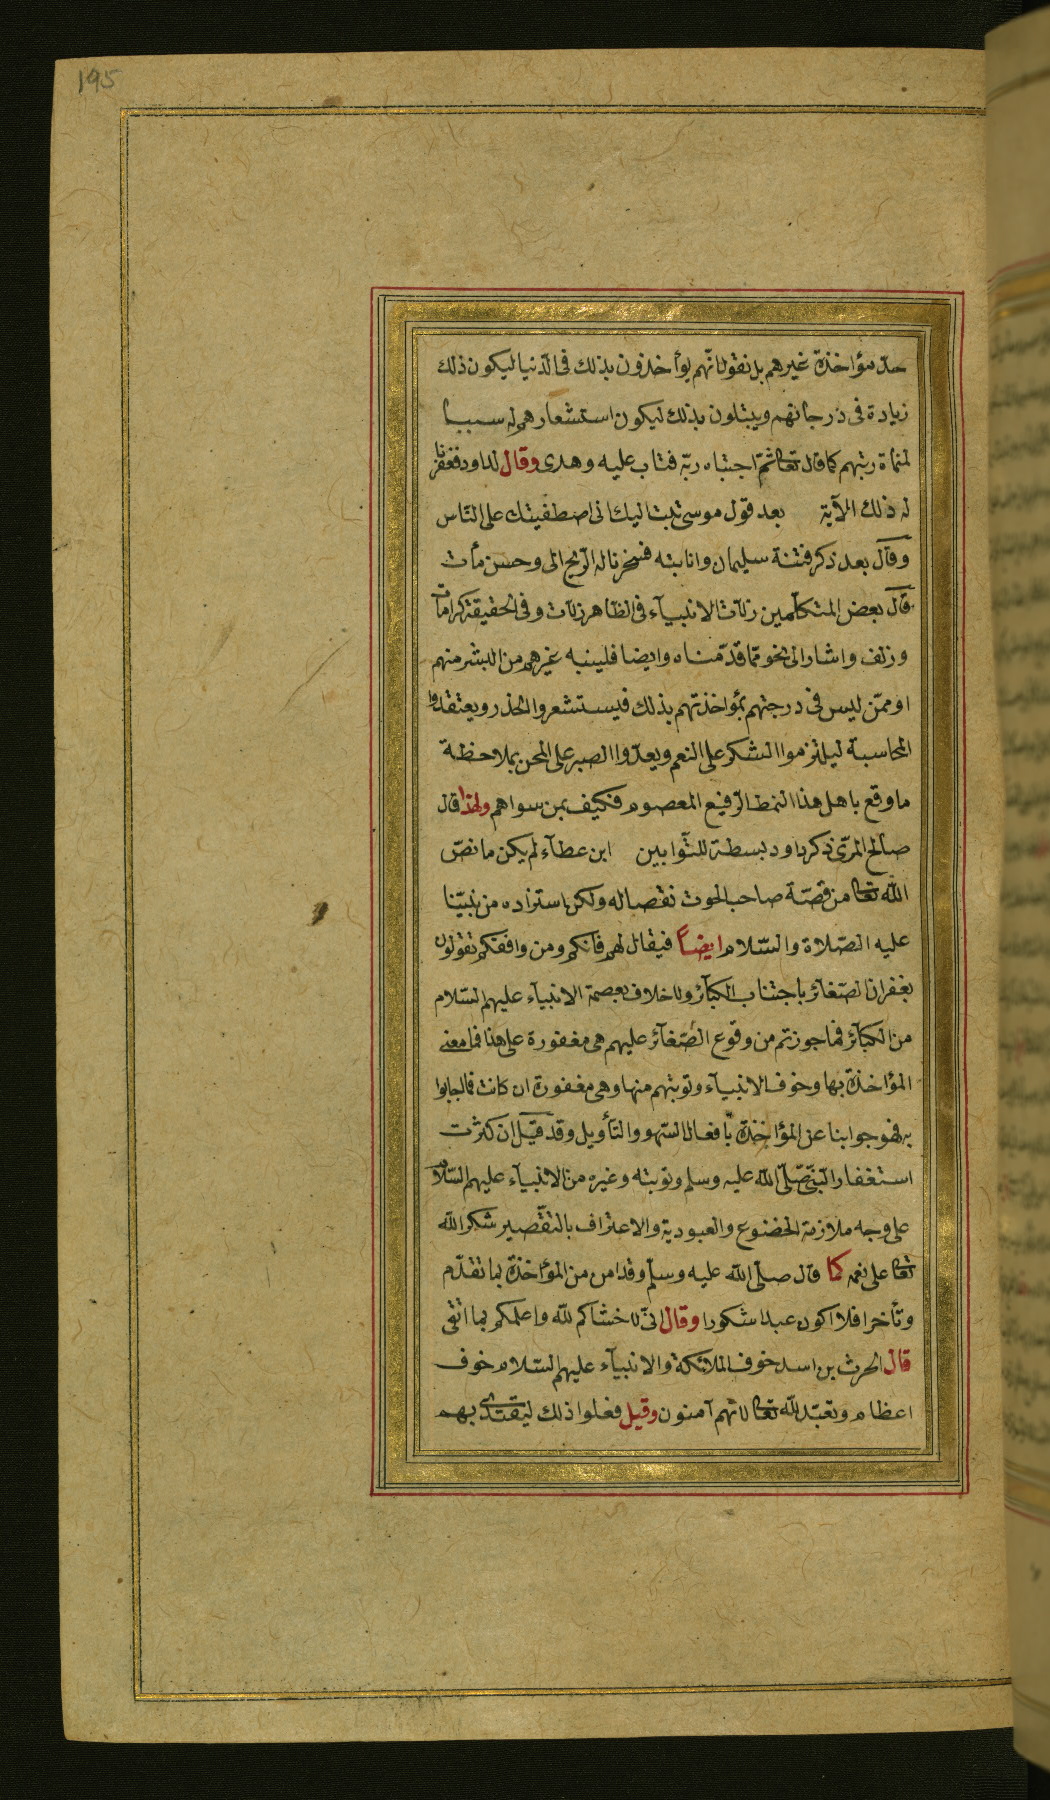 195
حدّ مؤاخذة غيرهم بل نقول انّهم يؤاخذون بذلك فى الدّنيا ليكون ذلك
زيادة فى درجاتهم ويبتلون بذلك ليكون استشعارهم له سببا
لمنماة رتبهم كما قال تعا ثمّ اجتباه ربّه فتاب عليه وهدى وقال لداود فغفرنا
له ذلك الآية بعد قول موسى تبت اليك انى اصطفيتك على النّاس
وقال بعد ذكر فتنة سليمان وانابته فسخرنا له الرّيح الى وحسن مأت
قال بعض المتكلّمين زلّات الانبيآء فى الظّاهر زلّات وفى الحقيقة كرامات
وزلف واشار الى نحو ممّا قدّمناه وايضا فلينبه غيرهم من البشر منهم
او ممّن ليس فى درجتهم بمؤاخذتهم بذلك فيستشعروا الحذر ويعتقدوا
المحاسبة ليلتزموا الشكر على النعم ويعدّوا الصبر على المحن بملاحظة
ما وقع باهل هذا النمط الرّفيع المعصوم فكيف بمن سواهم ولهذا قال
صالح المرّى ذكر داود بسطة للتّوابين ابن عطآء لم يكن ما نصّ
اللّه تعا من قصّة صاحب الحوت نقصا له ولكن استزاده من نبيّنا
عليه الصّلاة والسّلام ايضاً فيقال لهم فانّكم ومن وافقكم تقولون
بغفران الصّغائر باجتناب الكبآئر ولا خلاف بعصمة الانبيآء عليهم السّلام
من الكبآئر فما جوزتم من وقوع الصّغآئر عليهم هى مغفورة على هذا فما معنى
المؤاخذة بها وخوف الانبيآء وتوبتهم منها وهى مغفورة ان كانت فما اجابوا
به فهو جوابنا عن المؤاخذة بافعال السّهو والتّأويل وقد قيل ان كثرت
استغفار النّبىّ صلّى اللّه عليه وسلم وتوبته وغيره من الانبيآء عليهم السّلام
على وجه ملازمة الخضوع والعبودية والاعتراف بالتّقصير شكر اللّه
تعا على نعمه كما قال صلّى اللّه عليه وسلّم وقد امن من المؤاخذة بما تقدّم
وتأخر افلا اكون عبدا شكورا وقال انّى لاخشاكم للّه واعلمكم بما اتقى
قال الحرث بن اسد خوف الملائكة والانبيآء عليهم السّلام خوف
اعظام وتعبّد للّه تعا لانّهم آمنون وقيل فعلوا ذلك ليقتدى بهم